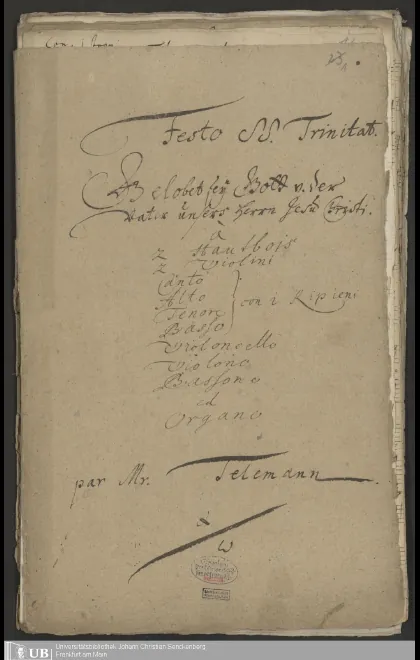 Festo SS. Trinitat.
Gelobet sey Gott v. der
Vater unsers Herrn Jesu Christi.
a
2 Hautbois
2 Violini
Canto
Alto
Tenore
Basso
con i Ripieni
Violoncello
Violono
Bassono
ed
Organo
par Mr. Telemann
UB
Universitätsbibliothek Johann Christian Senckenberg,
Frankfurt am Main